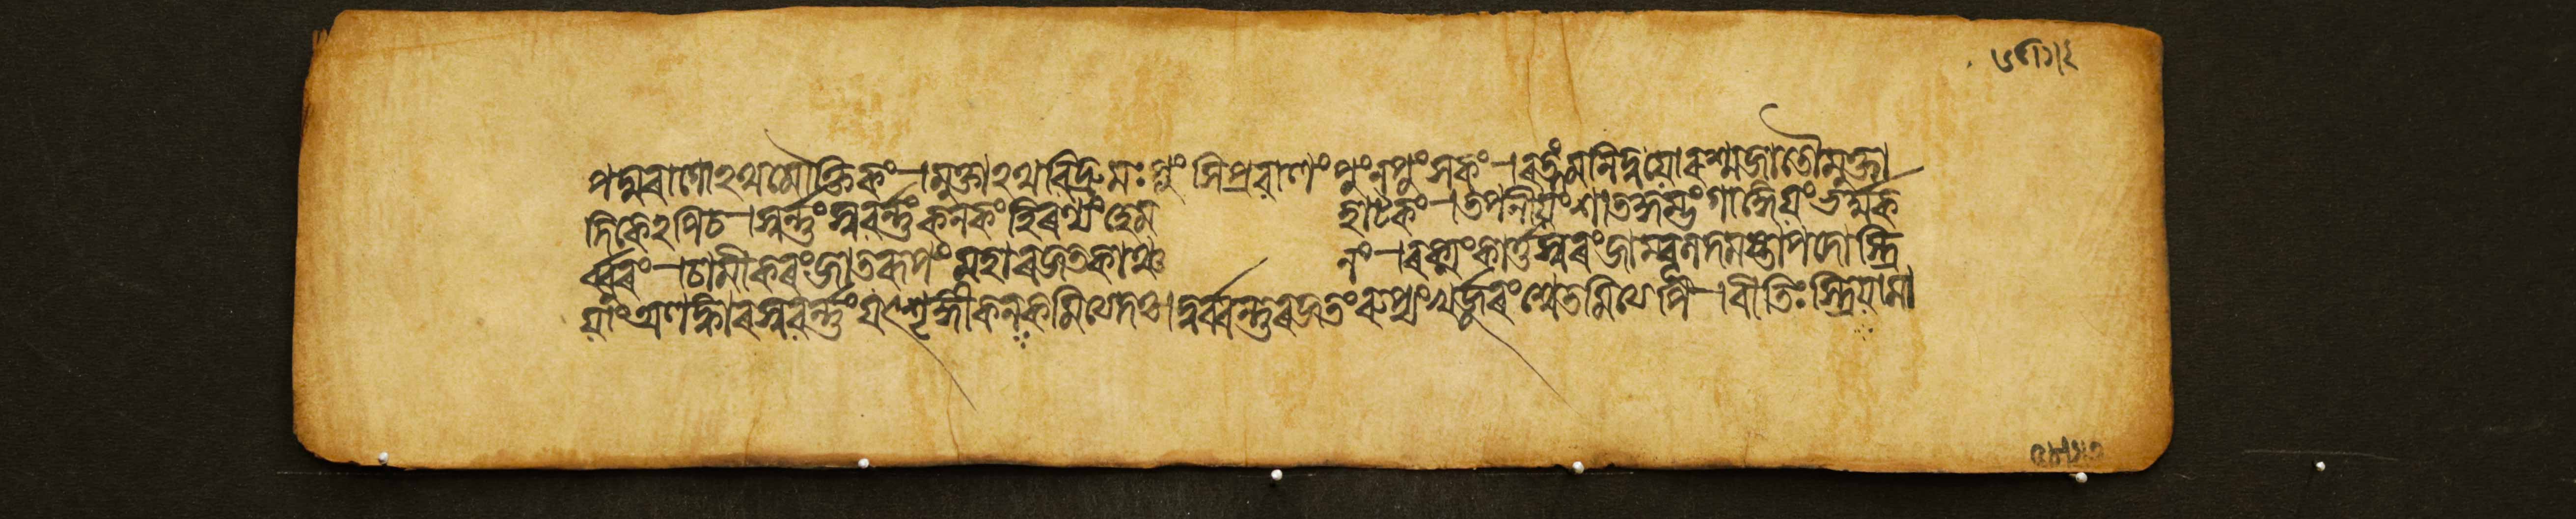 পদ্মৰাগোঽথমৌক্তিকং। মুক্তাঽথৱিদ্ৰুমঃ পুংসিপ্ৰৱালং পুংনপুংসকং। ৰত্নংমনিৰ্দ্বয়োৰশ্মজাতৌমুক্তা
দিকেঽপিচ। স্বৰ্ন্নংসুৱৰ্ন্নংকনকংহিৰণ্যংহেম হাটকং। তপনীয়ংশাতকুম্ভংগাঙ্গেয়ংভৰ্ম্মক
ৰ্ব্বুৰং। চামীকৰংজাতৰূপংমহাৰজতকাঞ্চ নং। ৰুক্মংকাৰ্ত্তস্বৰংজাম্বূনদমষ্টাপদোস্ত্ৰি
য়াং। অলঙ্কাৰসুৱৰ্ন্নংযৎশৃঙ্গীকনকমিত্যদঃ। দুৰ্ব্বৰ্ন্নংৰজতংৰূপ্যংখৰ্জ্জূৰংশ্বেতমিত্যপি। ৰীতিঃস্ত্ৰিয়ামা